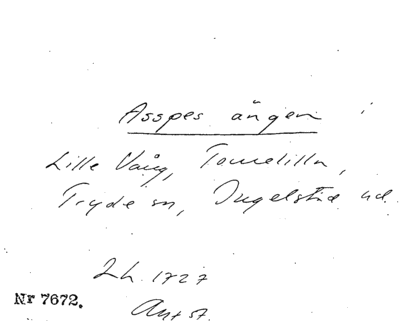 Asspes ängen i
Lille Vång, Tomelilla,
Tryde sn, Ingelstad hd.
Lh. 1727
Nr 7672.